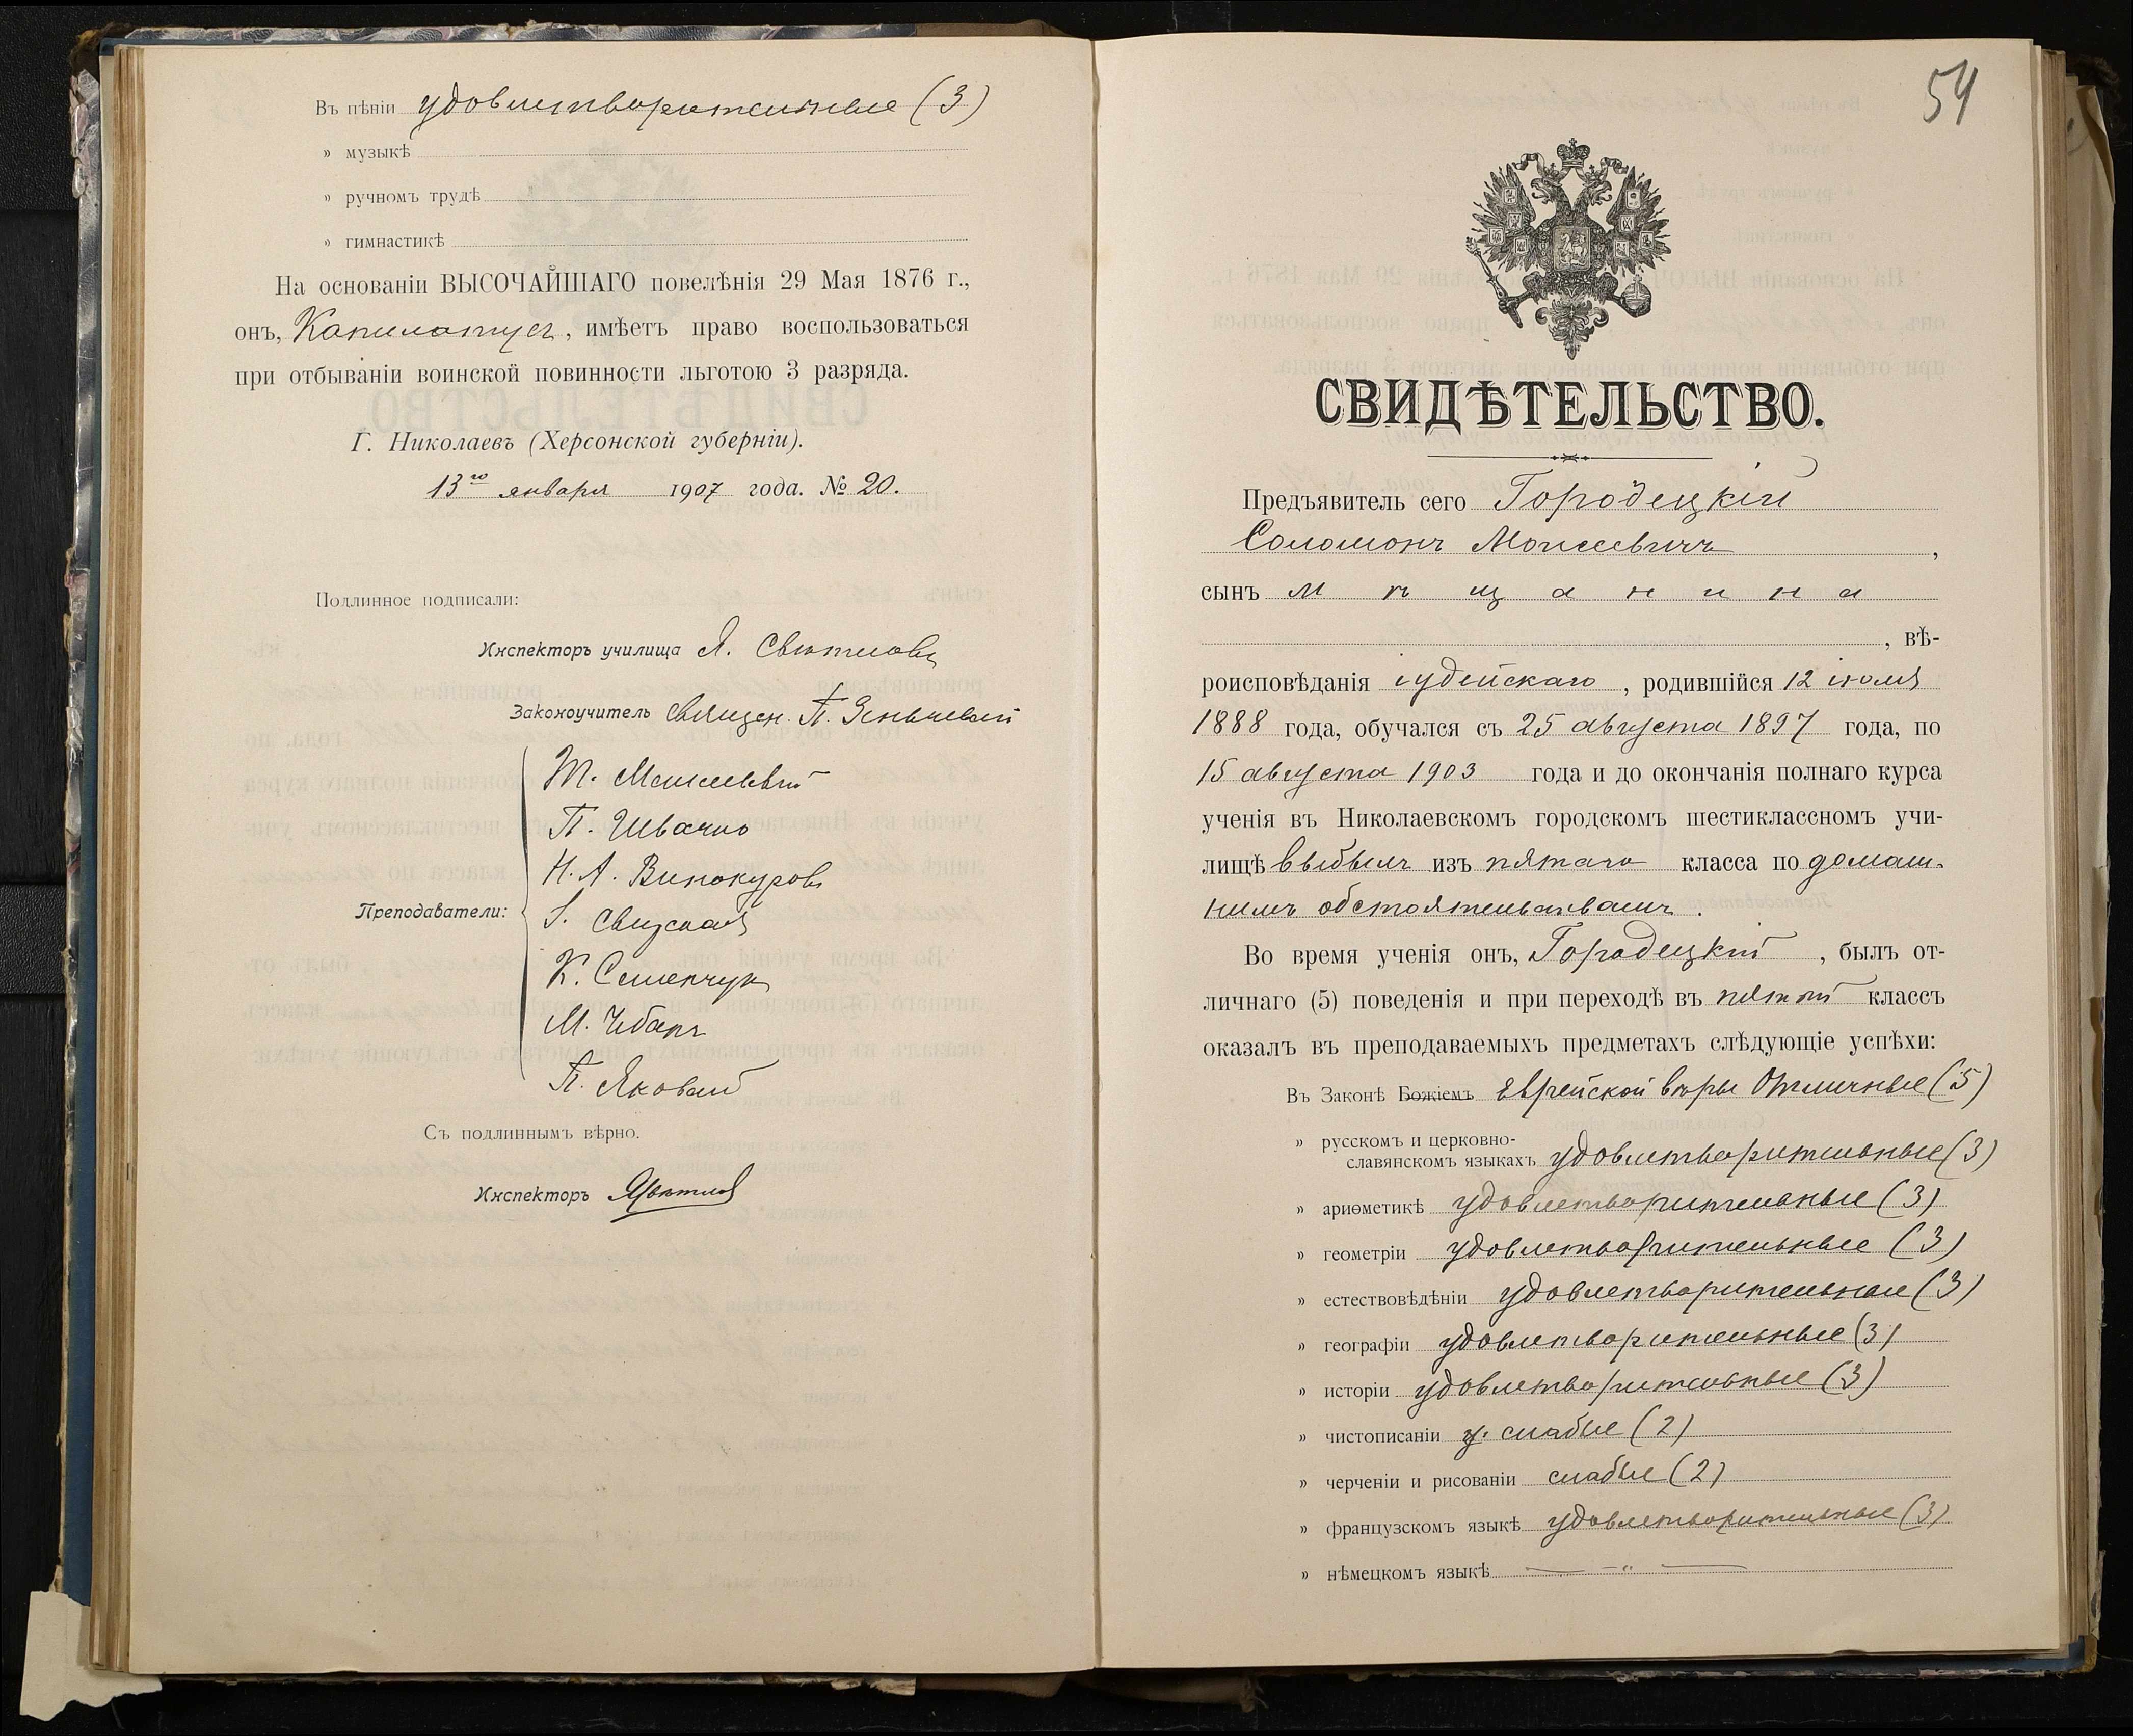 Въ пѣніи удовлетворительные (3)
» музыкѣ
» ручномъ трудѣ
» гимнастикѣ
На основаніи ВЫСОЧАЙШАГО повелѣнія 29 Мая 1876 г.,
онъ, , имѣетъ право воспользоваться
при отбываніи воинской повинности льготою 3 разряда.
Г. Николаевъ (Херсонской губерніи).
13го января 1907 года. № 20.
Подлинное подписали:
Инспекторъ училища Я. Свѣтловъ
Законоучитель священ. П.
Преподаватели:
П. Швачко
Н. А. Винокуровъ
К. Семенчукъ
М. Чебанъ
П. Яковый
Съ подлиннымъ вѣрно.
Инспекторъ ЯСвѣтлов
54
СВИДѢТЕЛЬСТВО.
Предъявитель сего Городецкій
Соломонъ Моисеевичъ ,
сынъ мѣщанина
, вѣ-
роисповѣданія іудейскаго , родившійся 12 іюля
1888 года, обучался съ 25 августа 1897 года, по
15 августа 1903 года и до окончанія полнаго курса
ученія въ Николаевскомъ городскомъ шестиклассномъ учи-
лищѣ выбылъ изъ пятаго класса по домаш-
нимъ обстоятельствамъ .
Во время ученія онъ, Городецкій , былъ от-
личнаго (5) поведенія и при переходѣ въ пятый классъ
оказалъ въ преподаваемыхъ предметахъ слѣдующіе успѣхи:
Въ Законѣ Божіемъ Еврейской вѣры Отличные (5)
» русскомъ и церковно-
славянскомъ языкахъ удовлетворительные (3)
» ариѳметикѣ удовлетворительные (3)
» геометріи удовлетворительные (3)
» естествовѣдѣніи удовлетворительные (3)
» географіи удовлетворительные (3)
» исторіи удовлетворительные (3)
» чистописаніи слабые (2)
» черченіи и рисованіи слабые (2)
» французскомъ языкѣ удовлетворительные (3)
» нѣмецкомъ языкѣ — " —